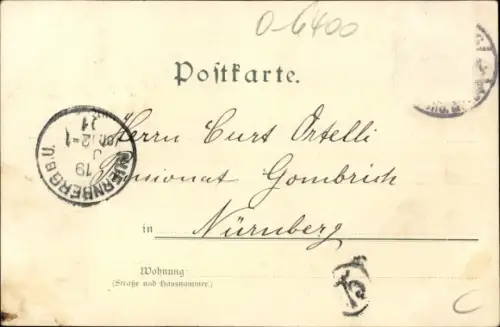 O-6400
Postkarte.
Herrn Curt Ortelli
Pensionat Gombrich
in Nürnberg
Wohnung
(Straße und Hausnummer.)
C